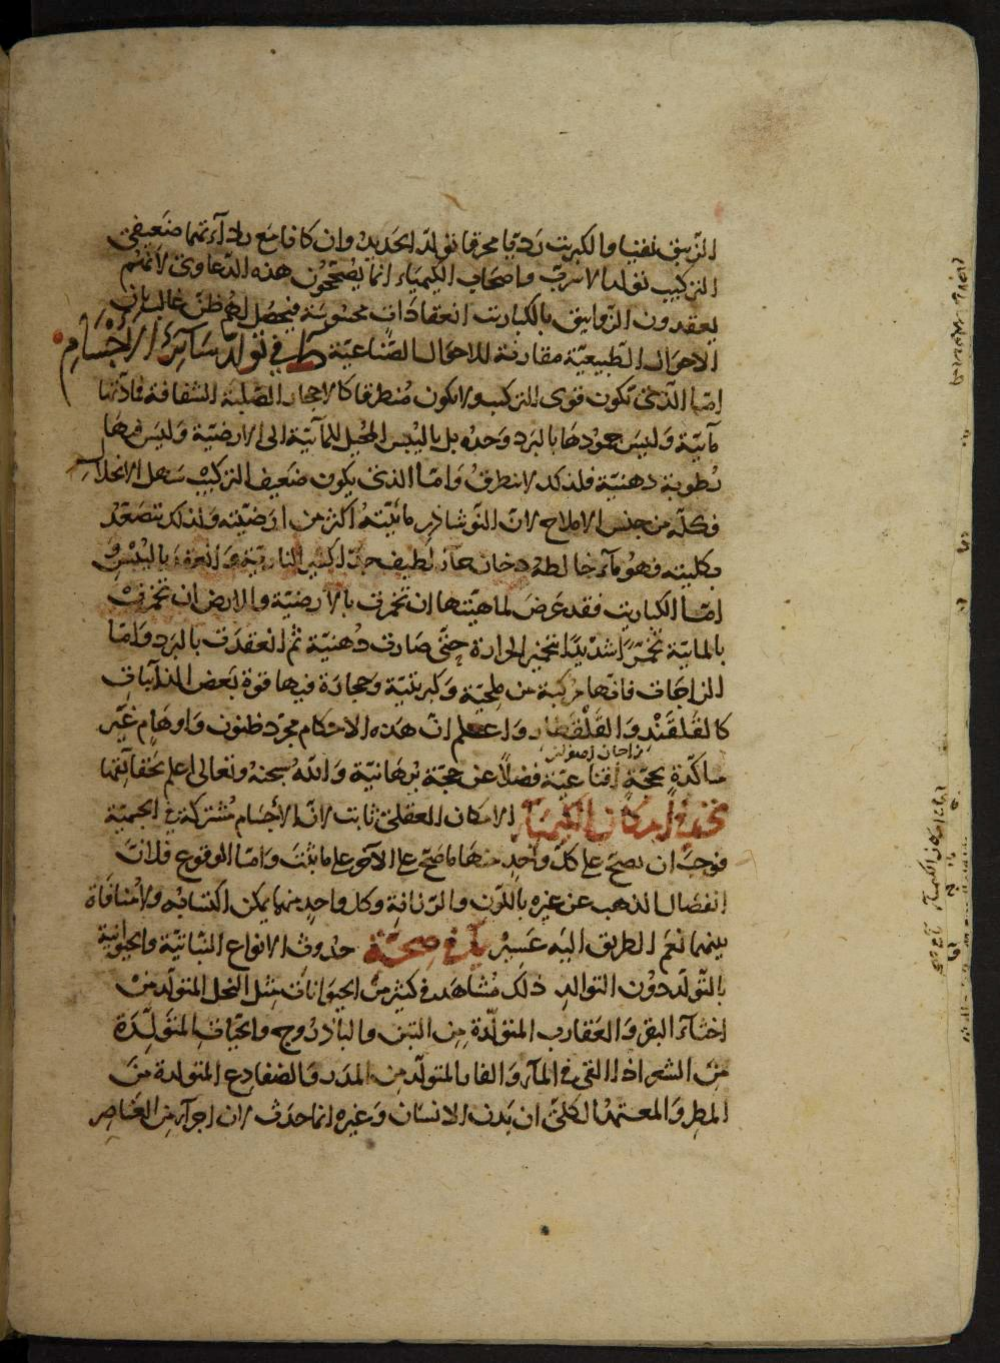 الزيبق نقيا والكبريت رديا محرقا تولد الحديد وان كانا مع رداءتهما ضعيفي
التركيب تولد الاسرب واصحاب الكيمياء انما يصححون هذه الدعاوى لانهم
يعقدون الزوابيق بالكباريت انعقادات محسوسة فيحصل لهم ظن غالب بان
الاحوال الطبيعية مقارنة للاحوال الصناعية ط في تولد سائر الاجسام
اما الذي تكون قوى التركيب ولا يكون منطرقا كالاحجار الصلبة الشفافة فمادتها
مآئية وليس جمودها بالبرد وحده بل باليبس المحيل للمآئية الى الارضية وليس فيها
رطوبة دهنية فلذلك لا ينطرق واما الذي يكون ضعيف التركيب سهل الانحلال
فكله من جنس الاملاح لان النوشاذر مائيته اكثر من ارضيته ولذلك يتصعد
بكليته فهو مآء خالطه دخان حار لطيف جدا كثير النارية وانعقد باليبس و
اما الكباريت فقد عرض لماهيتها ان تخمرت بالارضية والارض ان تخمرت
بالمائية تخمرا شديدا بتخمير الحرارة حتى صارت دهنية ثم انعقدت بالبرد واما
الزاجات فانها مركبة من ملحية وكبريتية وحجارة فيها قوة بعض الذآئبات
كالقلقند والقلقطار واعلم ان هذه الاحكام مجرد ظنون واوهام غير
زاجان اصفران
متاكدة بحجة اقناعية فضلا عن حجة برهانية والله سبحنه وتعالى اعلم بحقائقها
ى في امكان الكيمياء الامكان العقلى ثابت لان الاجسام مشتركة في الجسمية
فوجب ان يصح على كل واحد منها ما صح على الآخر على ما ثبت واما الوقوع فلان
انفصال الذهب عن غيره باللون والرزانة وكل واحد منهما يمكن اكتسابه ولا منافاة
بينهما نعم الطريق اليه عسير يا في صحة حدوث الانواع النباتية والحيوانية
بالتولد دون التوالد ذلك مشاهد في كثير من الحيوانات مثل النحل المتولد من
اخثآء البقر والعقارب المتولدة من التبن والباذروج والحيات المتولدة
من الشعر اذا القى في المآء والفار المتولد من المدر والضفادع المتولدة من
المطر والمعتمد الكلى ان بدن الانسان وغيره انما حدث لان اجزآء من العناصر